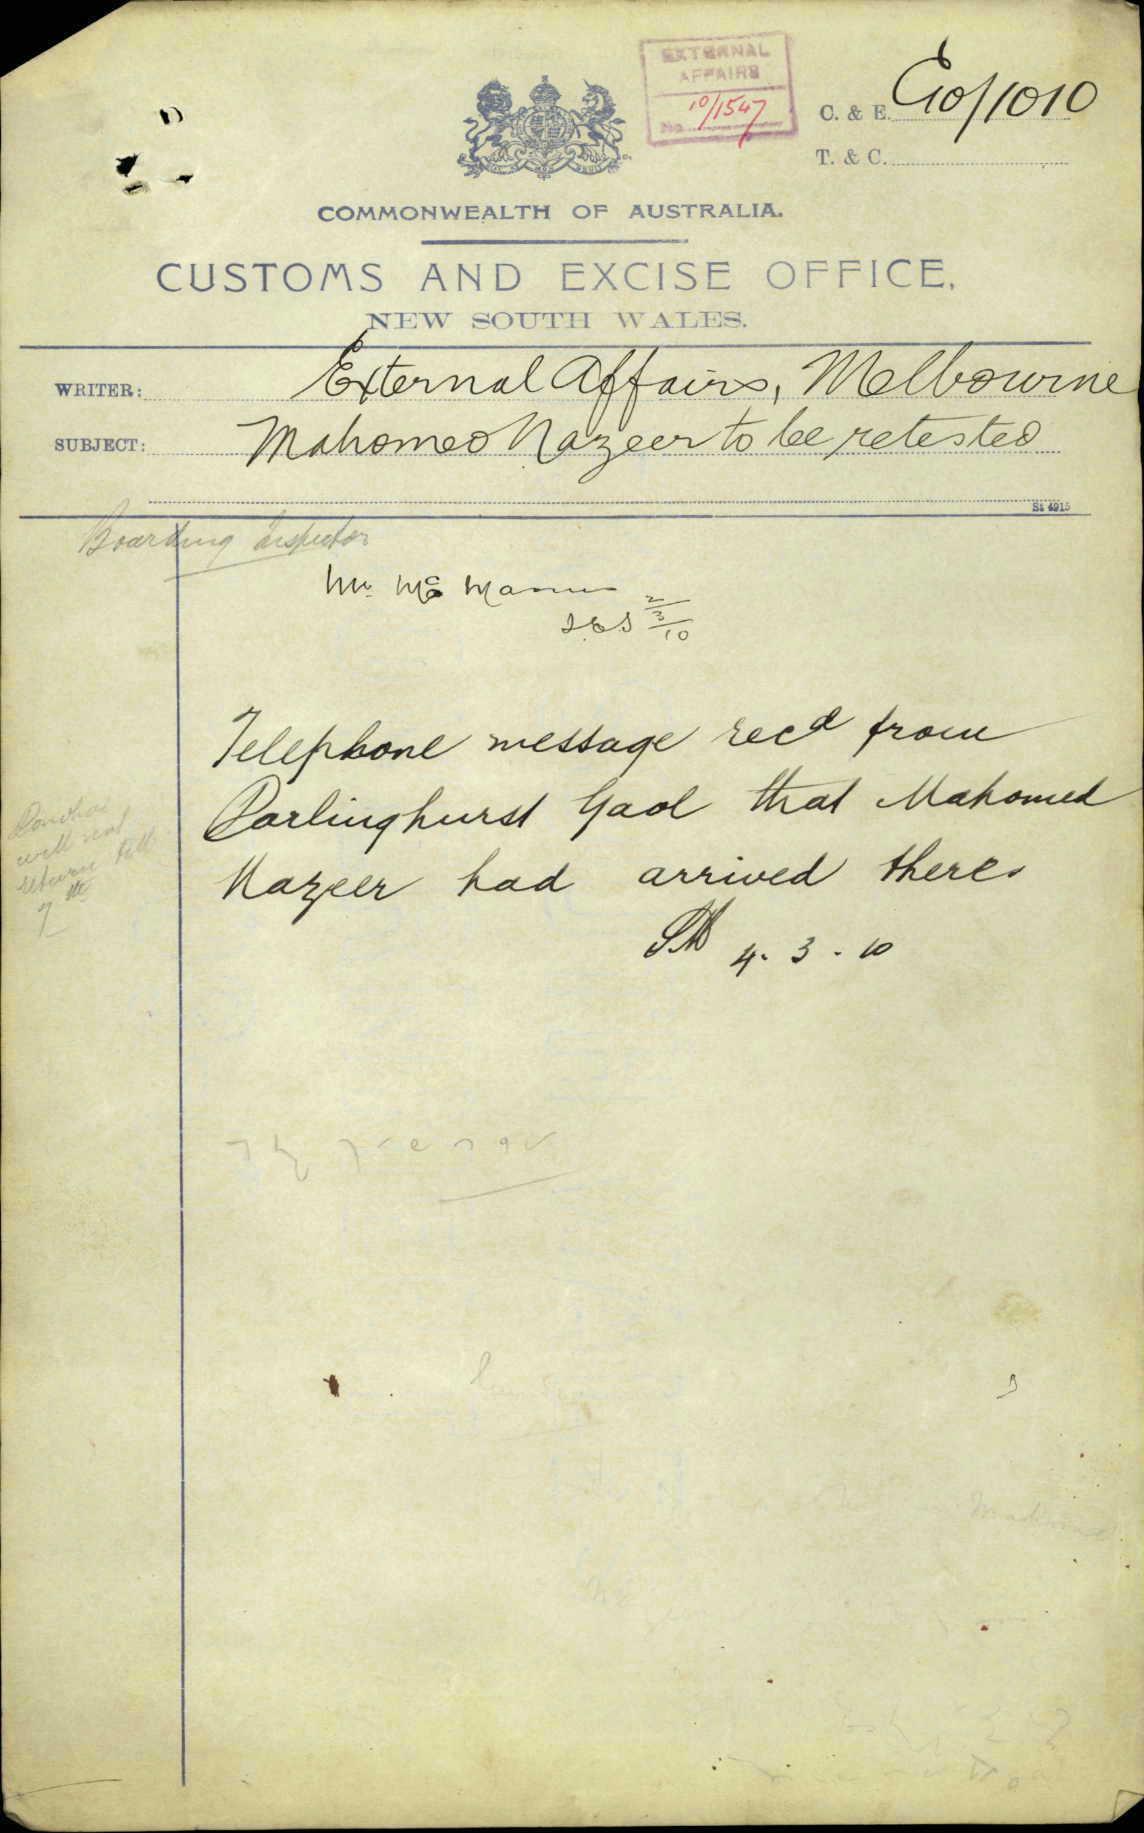 EXTERNAL
AFFAIRS
No. 10/1547
C. & E. E10/1010
T. & C.
COMMONWEALTH OF AUSTRALIA.
CUSTOMS AND EXCISE OFFICE,
NEW SOUTH WALES.
WRITER: External Affairs, Melbourne
SUBJECT: Mahomed Nazeer to be retested
St 4915
Boarding Inspector
Mr. McManus
2/3/10
Telephone message recd from
Darlinghurst Gaol that Mahomed
Nazeer had arrived there.
4. 3. 10
will not
return till
7th